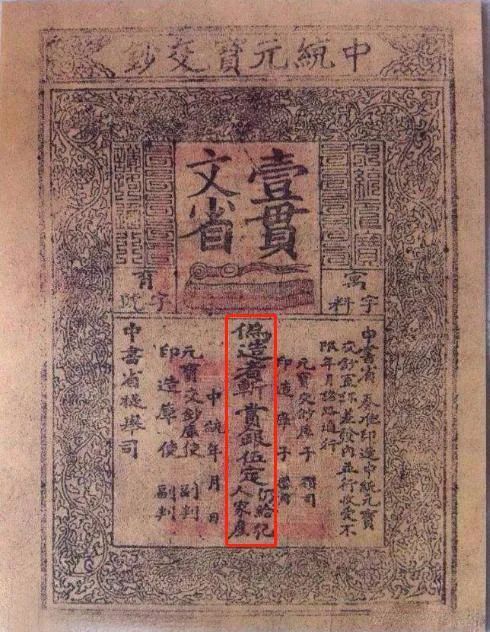 中統元寶交鈔
壹貫
文省
字料
字號
中書省 奏准印造中統元寶
交鈔宣課差發內並行收受不
限年月諸路通行
元寶交鈔庫子 攢司
印造庫子 攢司
偽造者斬賞銀伍定 仍給犯
人家產
中統 年 月 日
元寶交鈔庫使 副判
印造庫使 副判
中書省提舉司